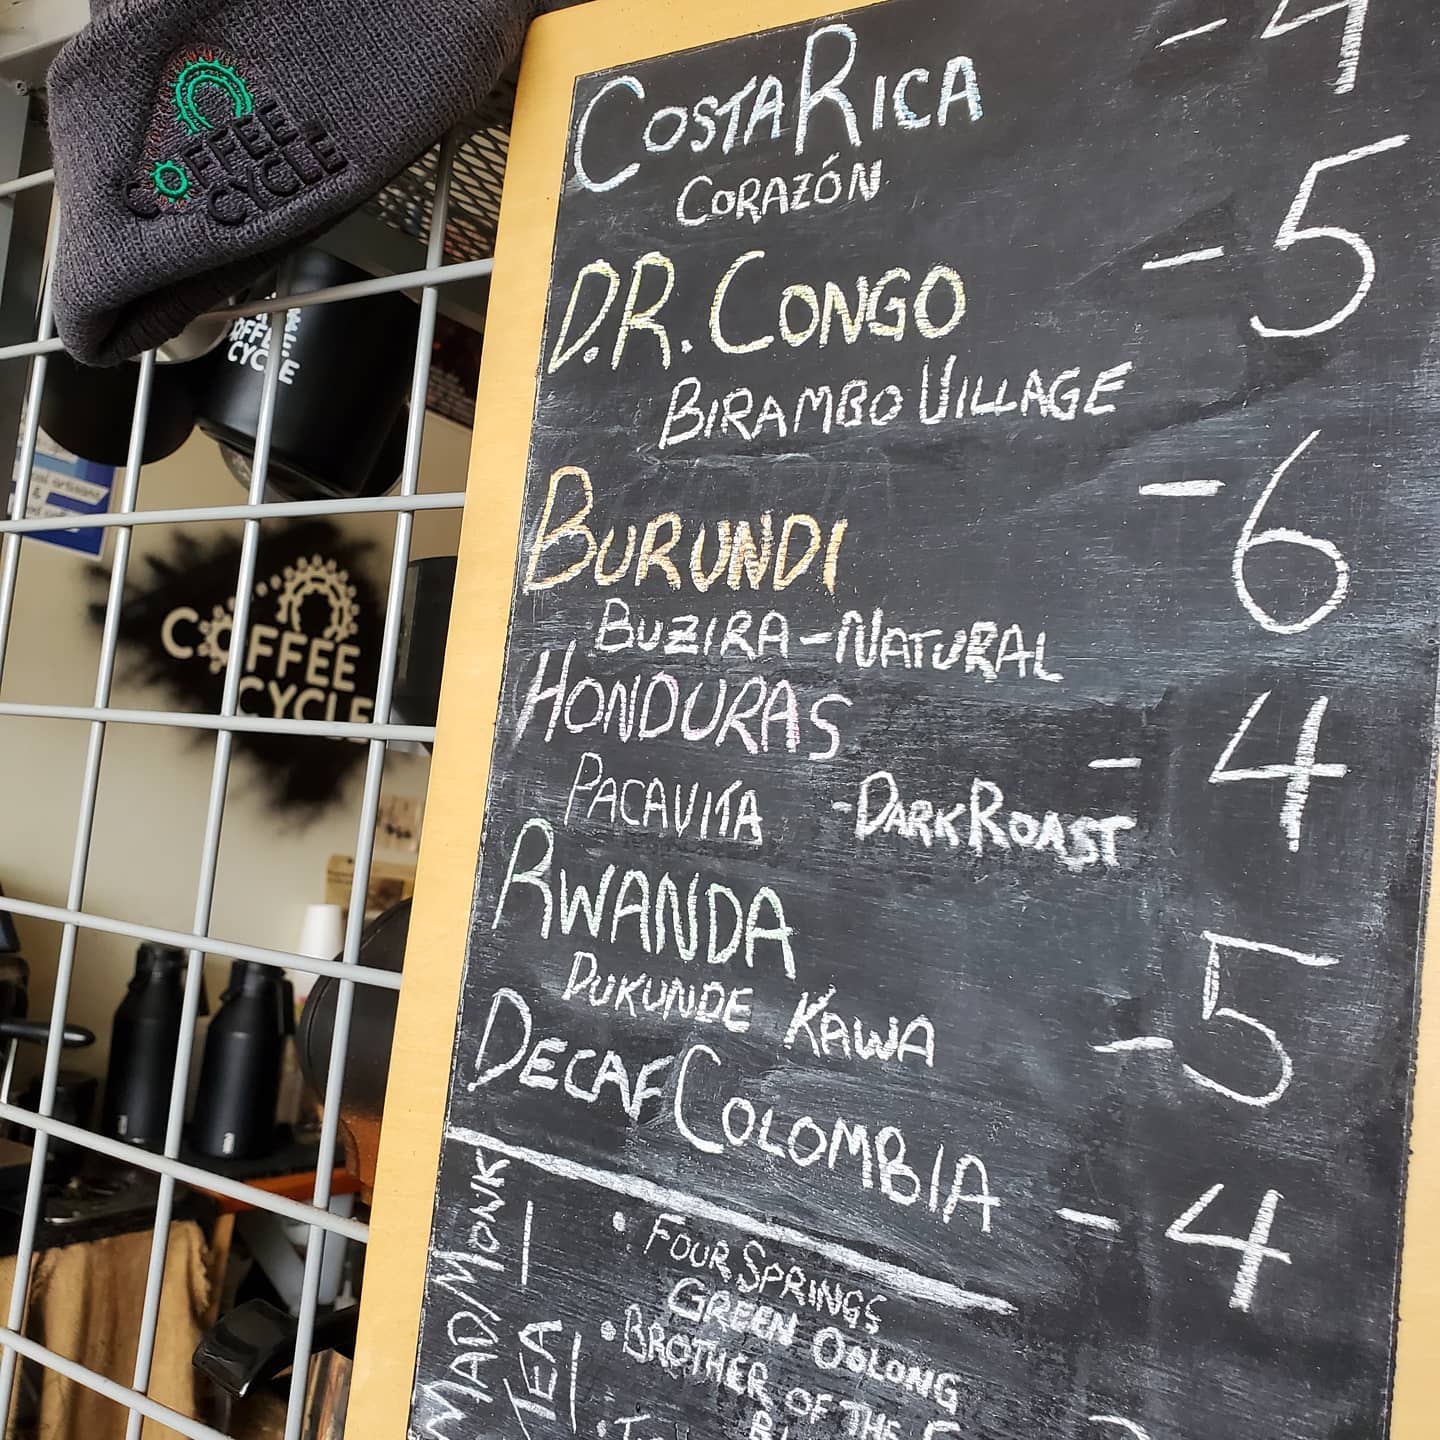 COFFEE
CYCLE
COFFEE
CYCLE
COFFEE
CYCLE
COSTA RICA - 4
CORAZÓN
D.R. CONGO - 5
BIRAMBO VILLAGE
BURUNDI - 6
BUZIRA-NATURAL
HONDURAS - 4
PACAVITA -DARK ROAST
RWANDA - 5
DUKUNDE KAWA
DECAF COLOMBIA - 4
MAD/MONK
TEA
• FOUR SPRINGS
GREEN OOLONG
• BROTHER OF THE